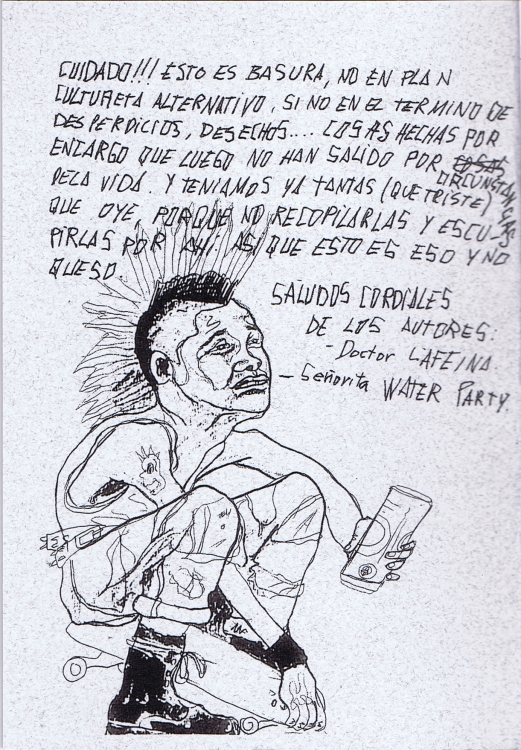 CUIDADO!!! ESTO ES BASURA, NO EN PLAN
CULTURETA ALTERNATIVO, SI NO EN EL TERMINO DE
DESPERDICIOS, DESECHOS.... COSAS HECHAS POR
ENCARGO QUE LUEGO NO HAN SALIDO POR CIRCUNSTANCIAS
DELA VIDA. Y TENIAMOS YA TANTAS (QUE TRISTE)
QUE OYE, PORQUE NO RECOPILARLAS Y ESCU-
PIRLAS POR AHI. ASI QUE ESTO ES ESO Y NO
QUESO.
SALUDOS CORDIALES
DE LOS AUTORES:
- Doctor CAFEINA.
- Señorita WATER PARTY.